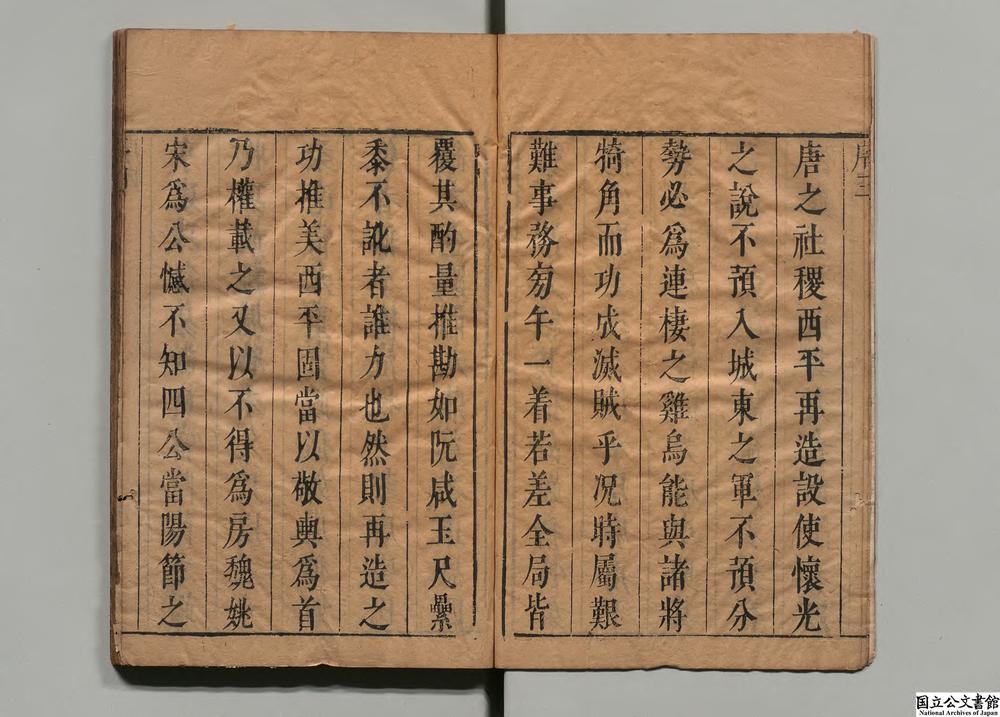 唐之社稷西平再造設使懷光
之說不預入城東之軍不預分
勢必爲連棲之雞烏能與諸將
犄角而功成滅賊乎况時屬艱
難事務旁午一着若差全局皆
覆其酌量推勘如阮咸玉尺纍
黍不訛者誰力也然則再造之
功推美西平固當以敬輿爲首
乃權載之又以不得爲房魏姚
宋爲公憾不知四公當陽節之
国立公文書館
National Archives of Japan